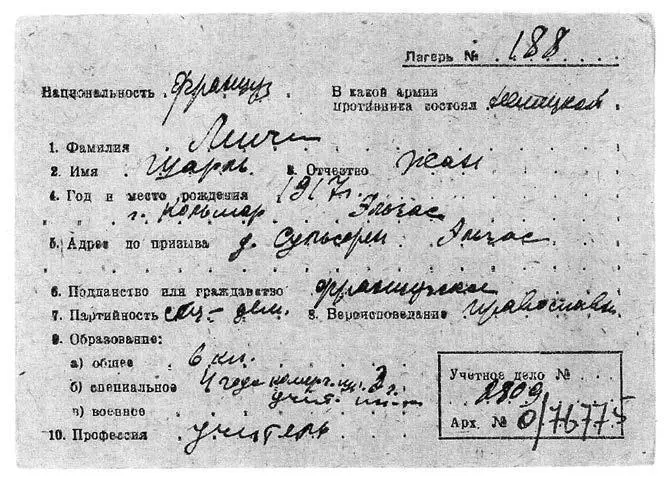 Лагерь № 188
Национальность француз В какой армии
противника состоял немецкой
1. Фамилия
2. Имя Шарль 3. Отчество Жан
4. Год и место рождения 1917г.
г. Кольмар Эльзас
5. Адрес до призыва д. Эльзас
6. Подданство или гражданство французское
7. Партийность соц-дем. 8. Вероисповедание православн.
9. Образование:
а) общее 6 кл.
б) специальное 4 года
учит.
в) военное
10. Профессия учитель
Учетное дело №
2809
Арх. № 0/76775